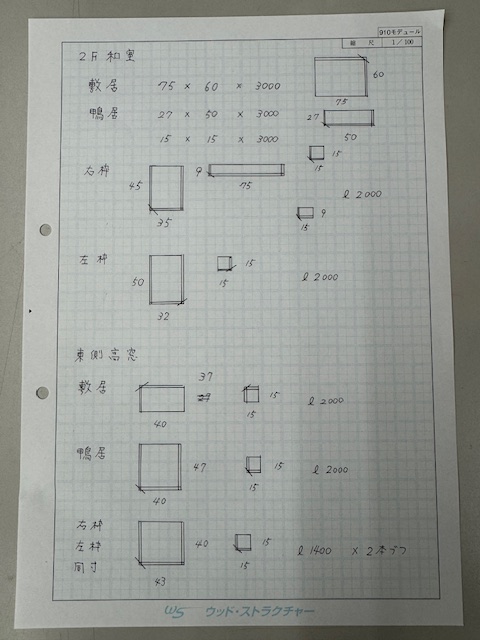 910モデュール
縮尺 1/100
2F和室
敷居 75 × 60 × 3000
60
75
鴨居 27 × 50 × 3000
27
50
15 × 15 × 3000
15
15
右枠
45
35
9
75
l 2000
9
15
左枠
50
32
15
15
l 2000
東側高窓
敷居
37
40
15
15
l 2000
鴨居
47
40
15
15
l 2000
右枠
左枠
同寸
40
43
15
15
l 1400 × 2本づつ
WS ウッド・ストラクチャー